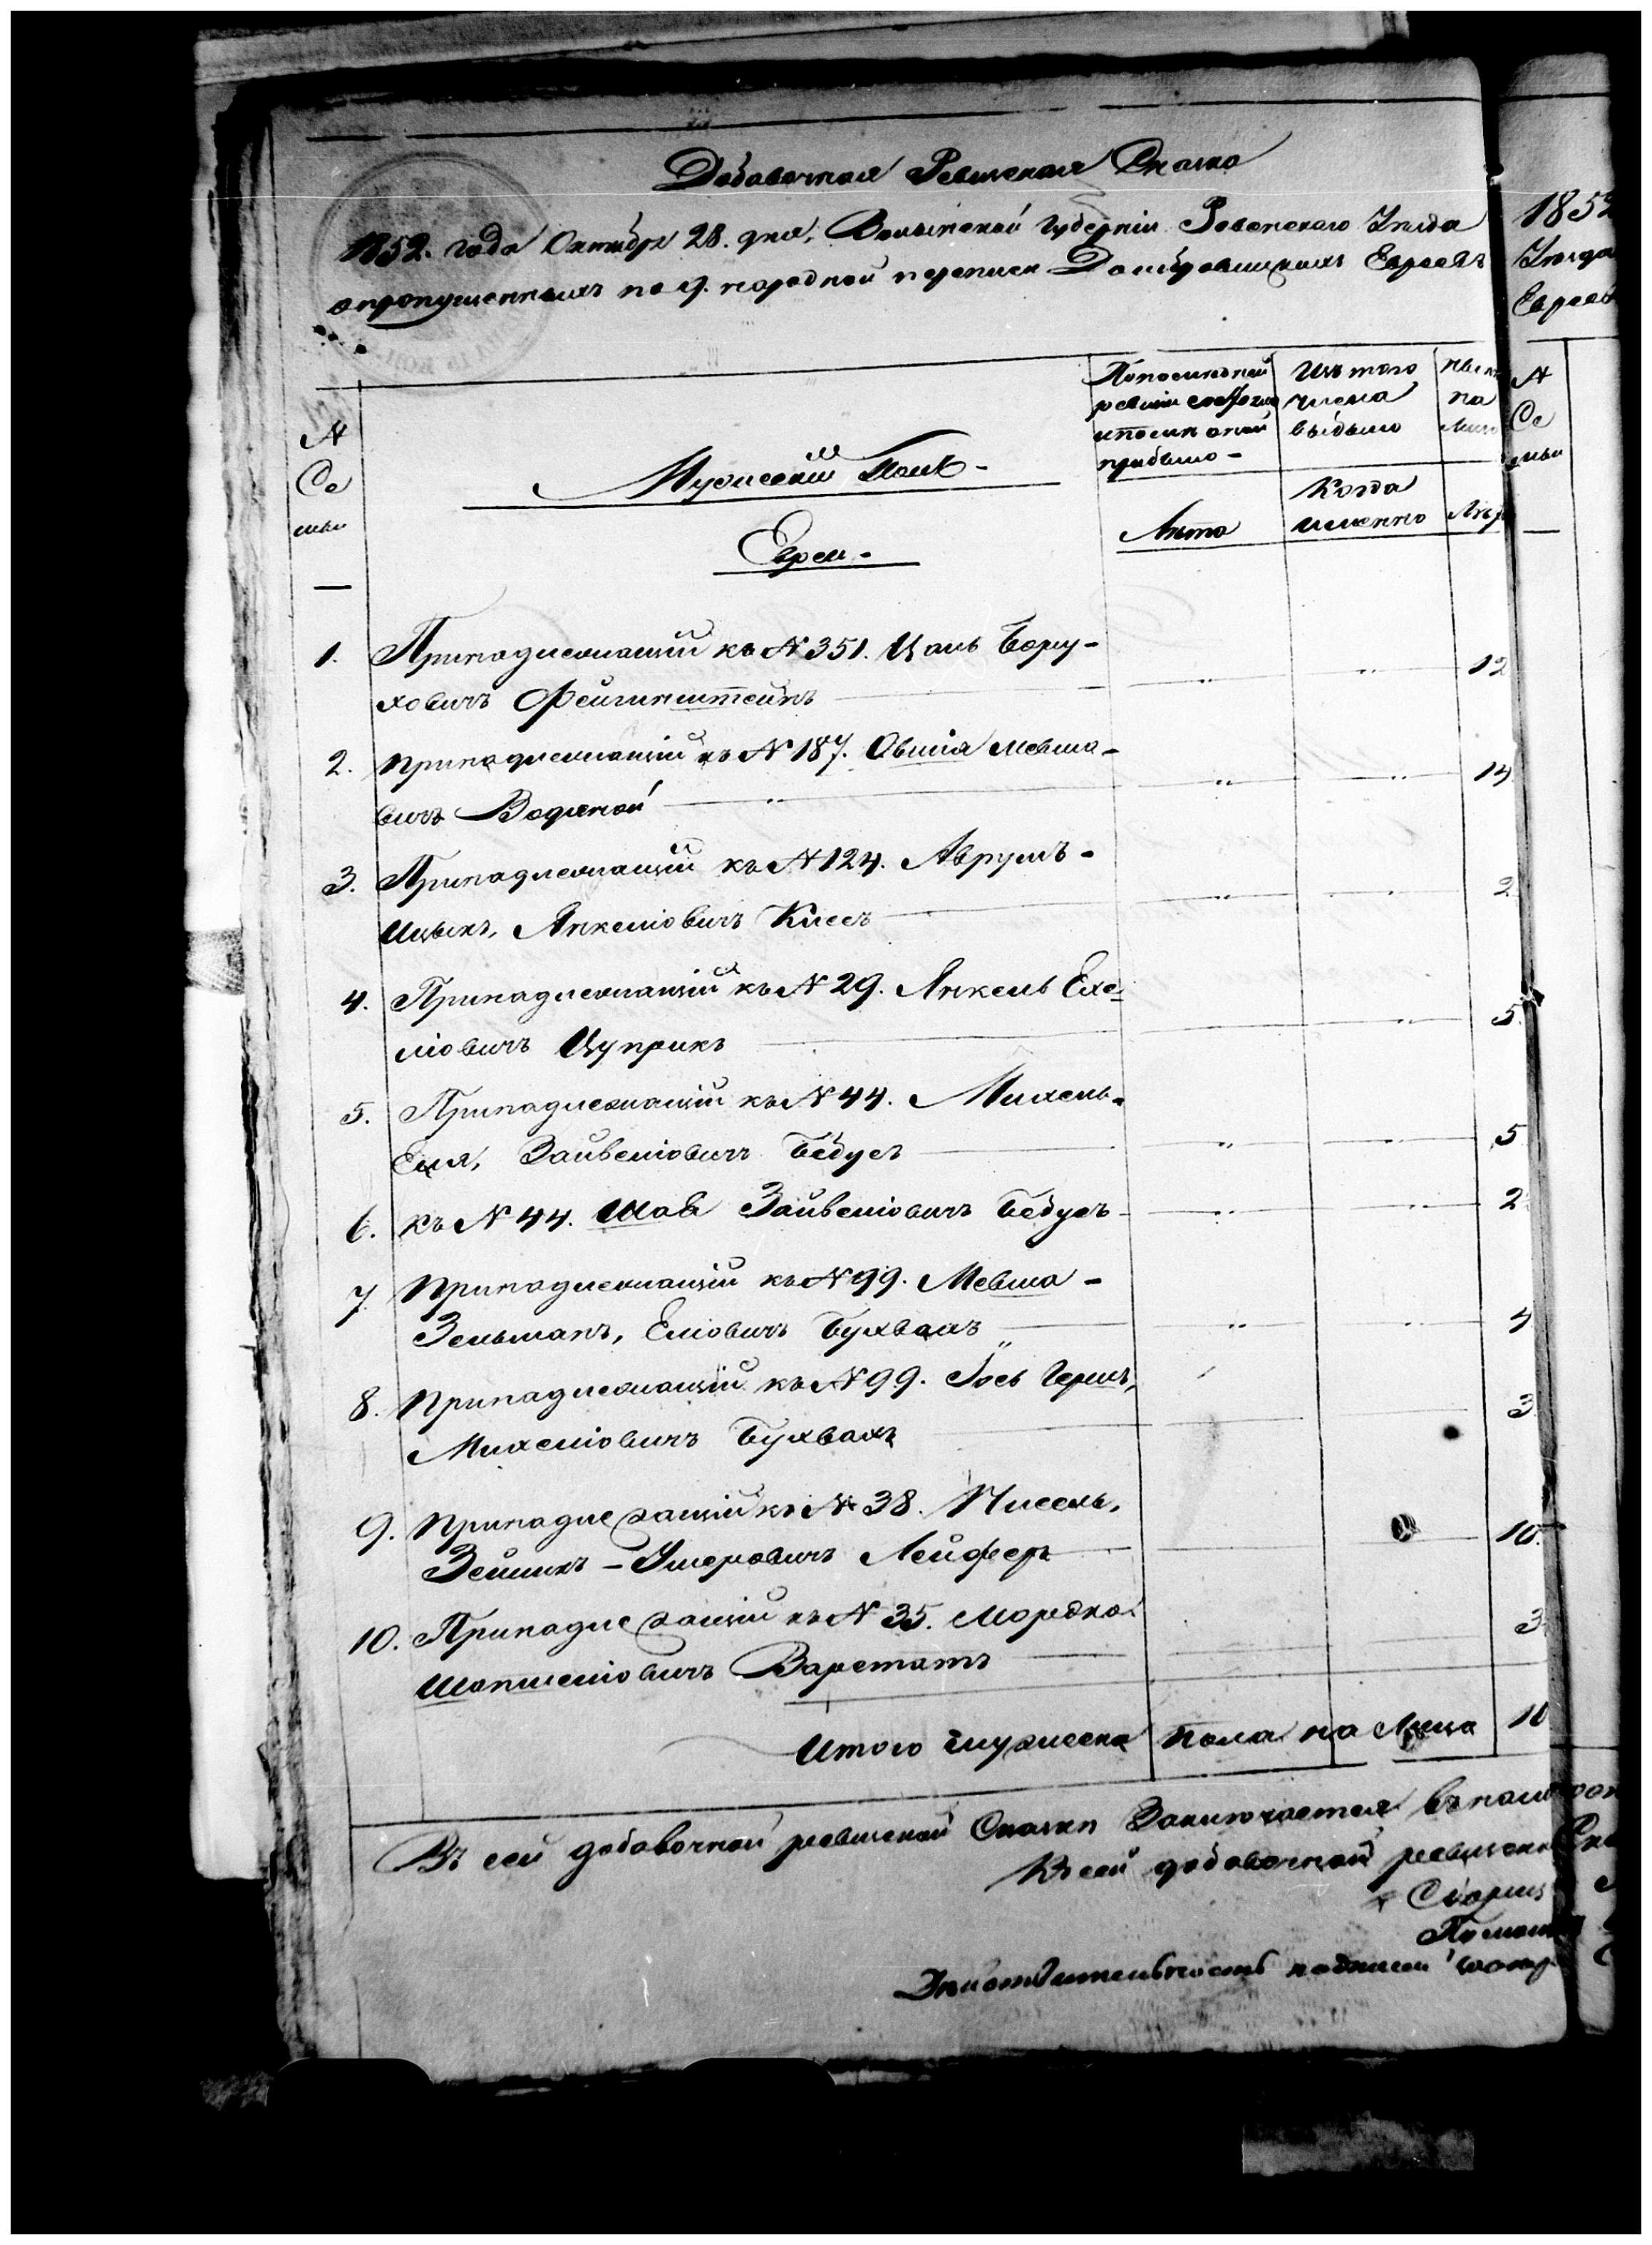 Добавочная Ревизская Сказка
1852. года Октября 28. дня, Волынской Губерніи Ровенского Уѣзда
опропущенныхъ по 9. народной переписи Домбровицкихъ Евреевъ
№
Се
мьи
Мужескій Полъ -
Евреи -
Попослѣдней
ревизіи состояло
ипослѣ оной
прибыло -
Лѣта
Изъ того
числа
выбыло
Когда
именно
на
1. Принадлежащій къ № 351. Цаль Бору-
ховичъ Фейгинштейнъ " " 12
2. Принадлежащій къ № 187. Овшія Мовшо-
вичъ Водяной " " " 14
3. Принадлежащій къ № 124. Аврумъ -
Ицыкъ, Янкеліовичъ Кисъ " " 2
4. Принадлежащій къ № 29. Янкель Ехе-
ліовичъ Цуприкъ " 5.
5. Принадлежащій къ № 44. Михель-
Еля, Зайвеліовичъ Бебусъ " " 5
6. къ № 44. Шая Зайвеліовичъ Бебусъ " " 2
7. Принадлежащій къ № 99. Мовша -
Зельманъ, Еліовичъ Бухвалъ " " " 4
8. Принадлежащій къ № 99. Іось Гершъ,
Михеліовичъ Бухвалъ 3
9. Принадлежащій къ № 38. Нисель,
Зейликъ - Ушеровичъ Лейферъ 10.
10. Принадлежащій къ № 35. Мордко
Шопшеліовичъ Варстатъ 3
Итого мужеска пола на Лицо 10
Въ сей добавочной ревизской Сказки Заключается
Къ сей добавочной
1852
Уѣзда
№
Се
мьи